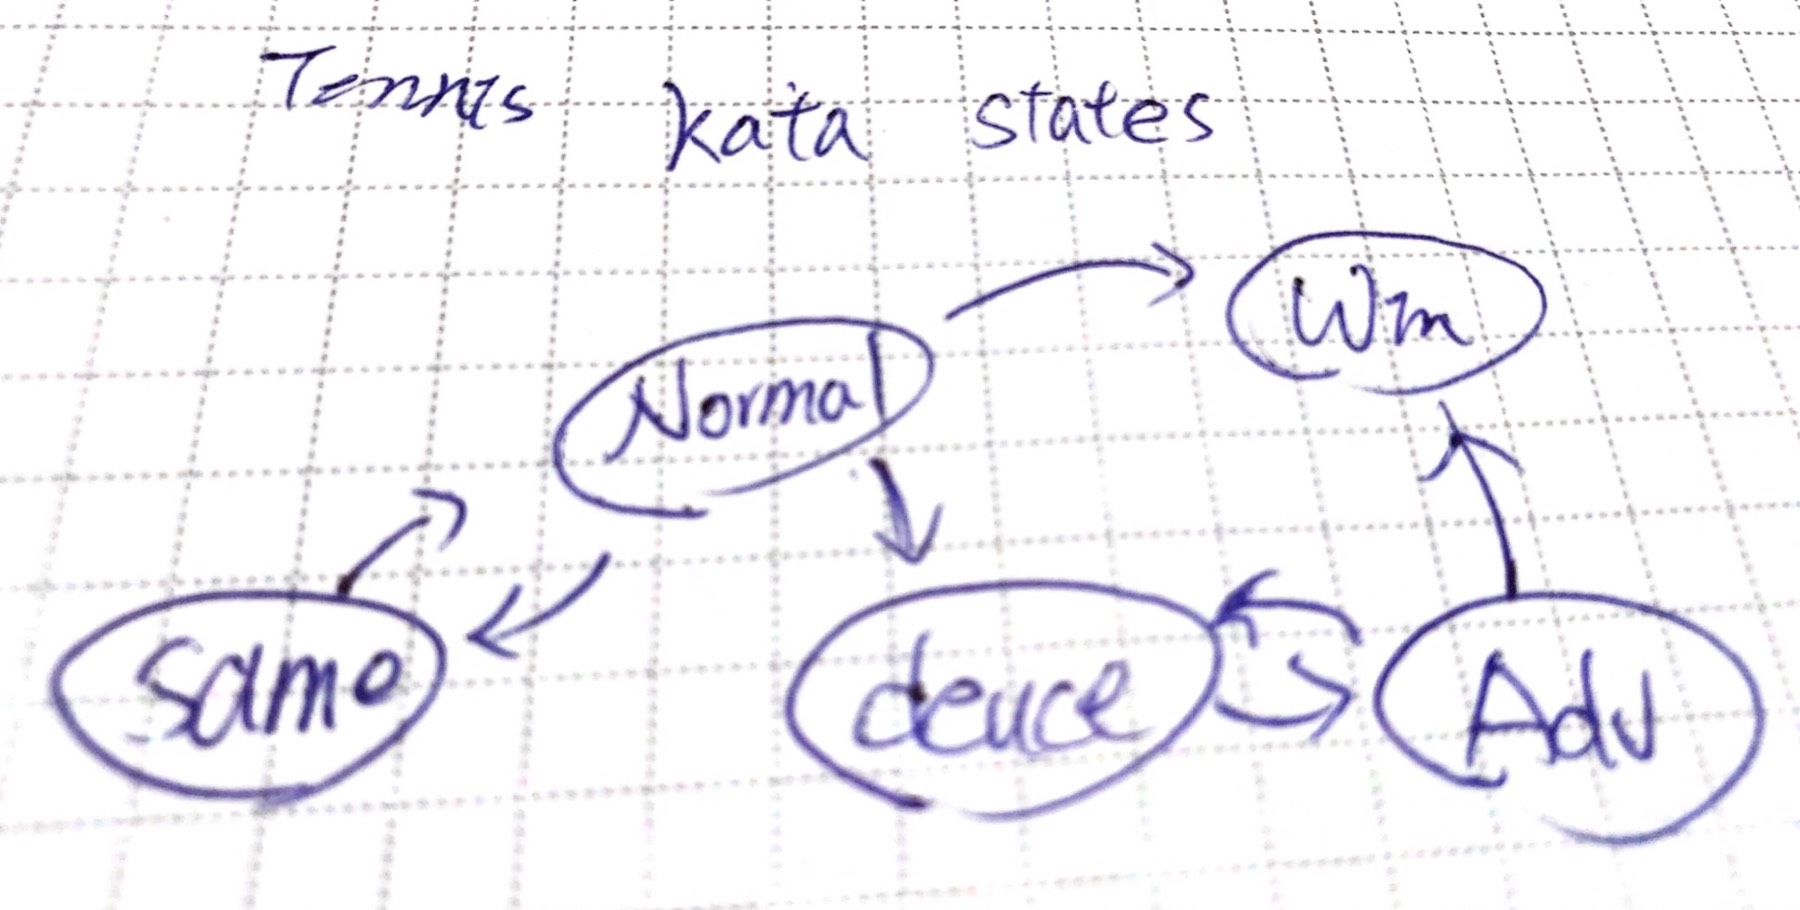 Tennis kata states
Win
Normal
Same
deuce
Adv